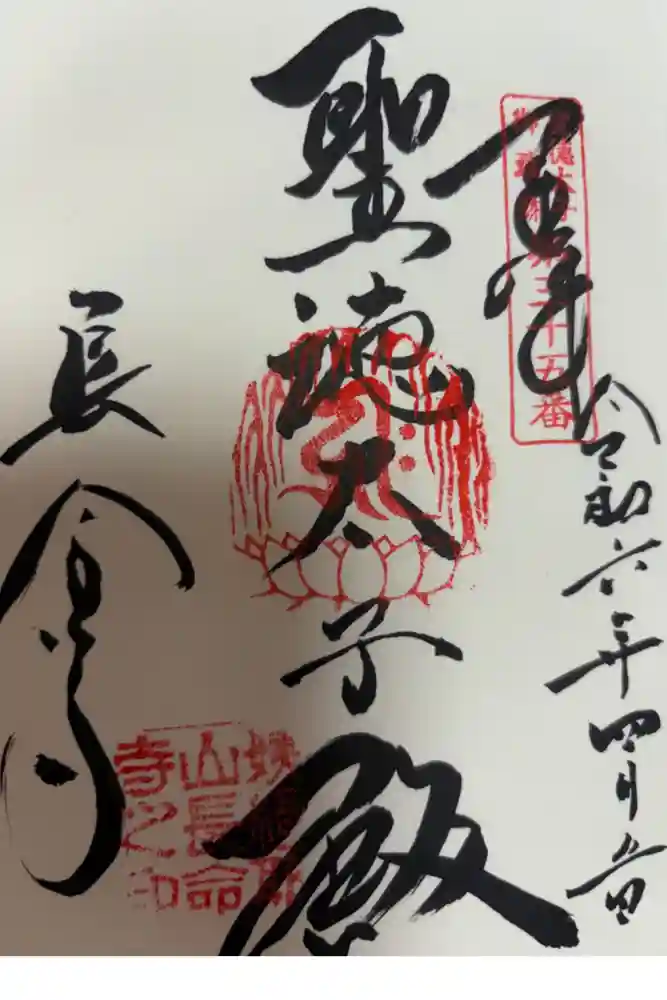 奉拝
聖徳太子
御遺跡第三十五番
令和六年四月五日
聖徳太子殿
長命寺
姨綺耶
山長命
寺之印